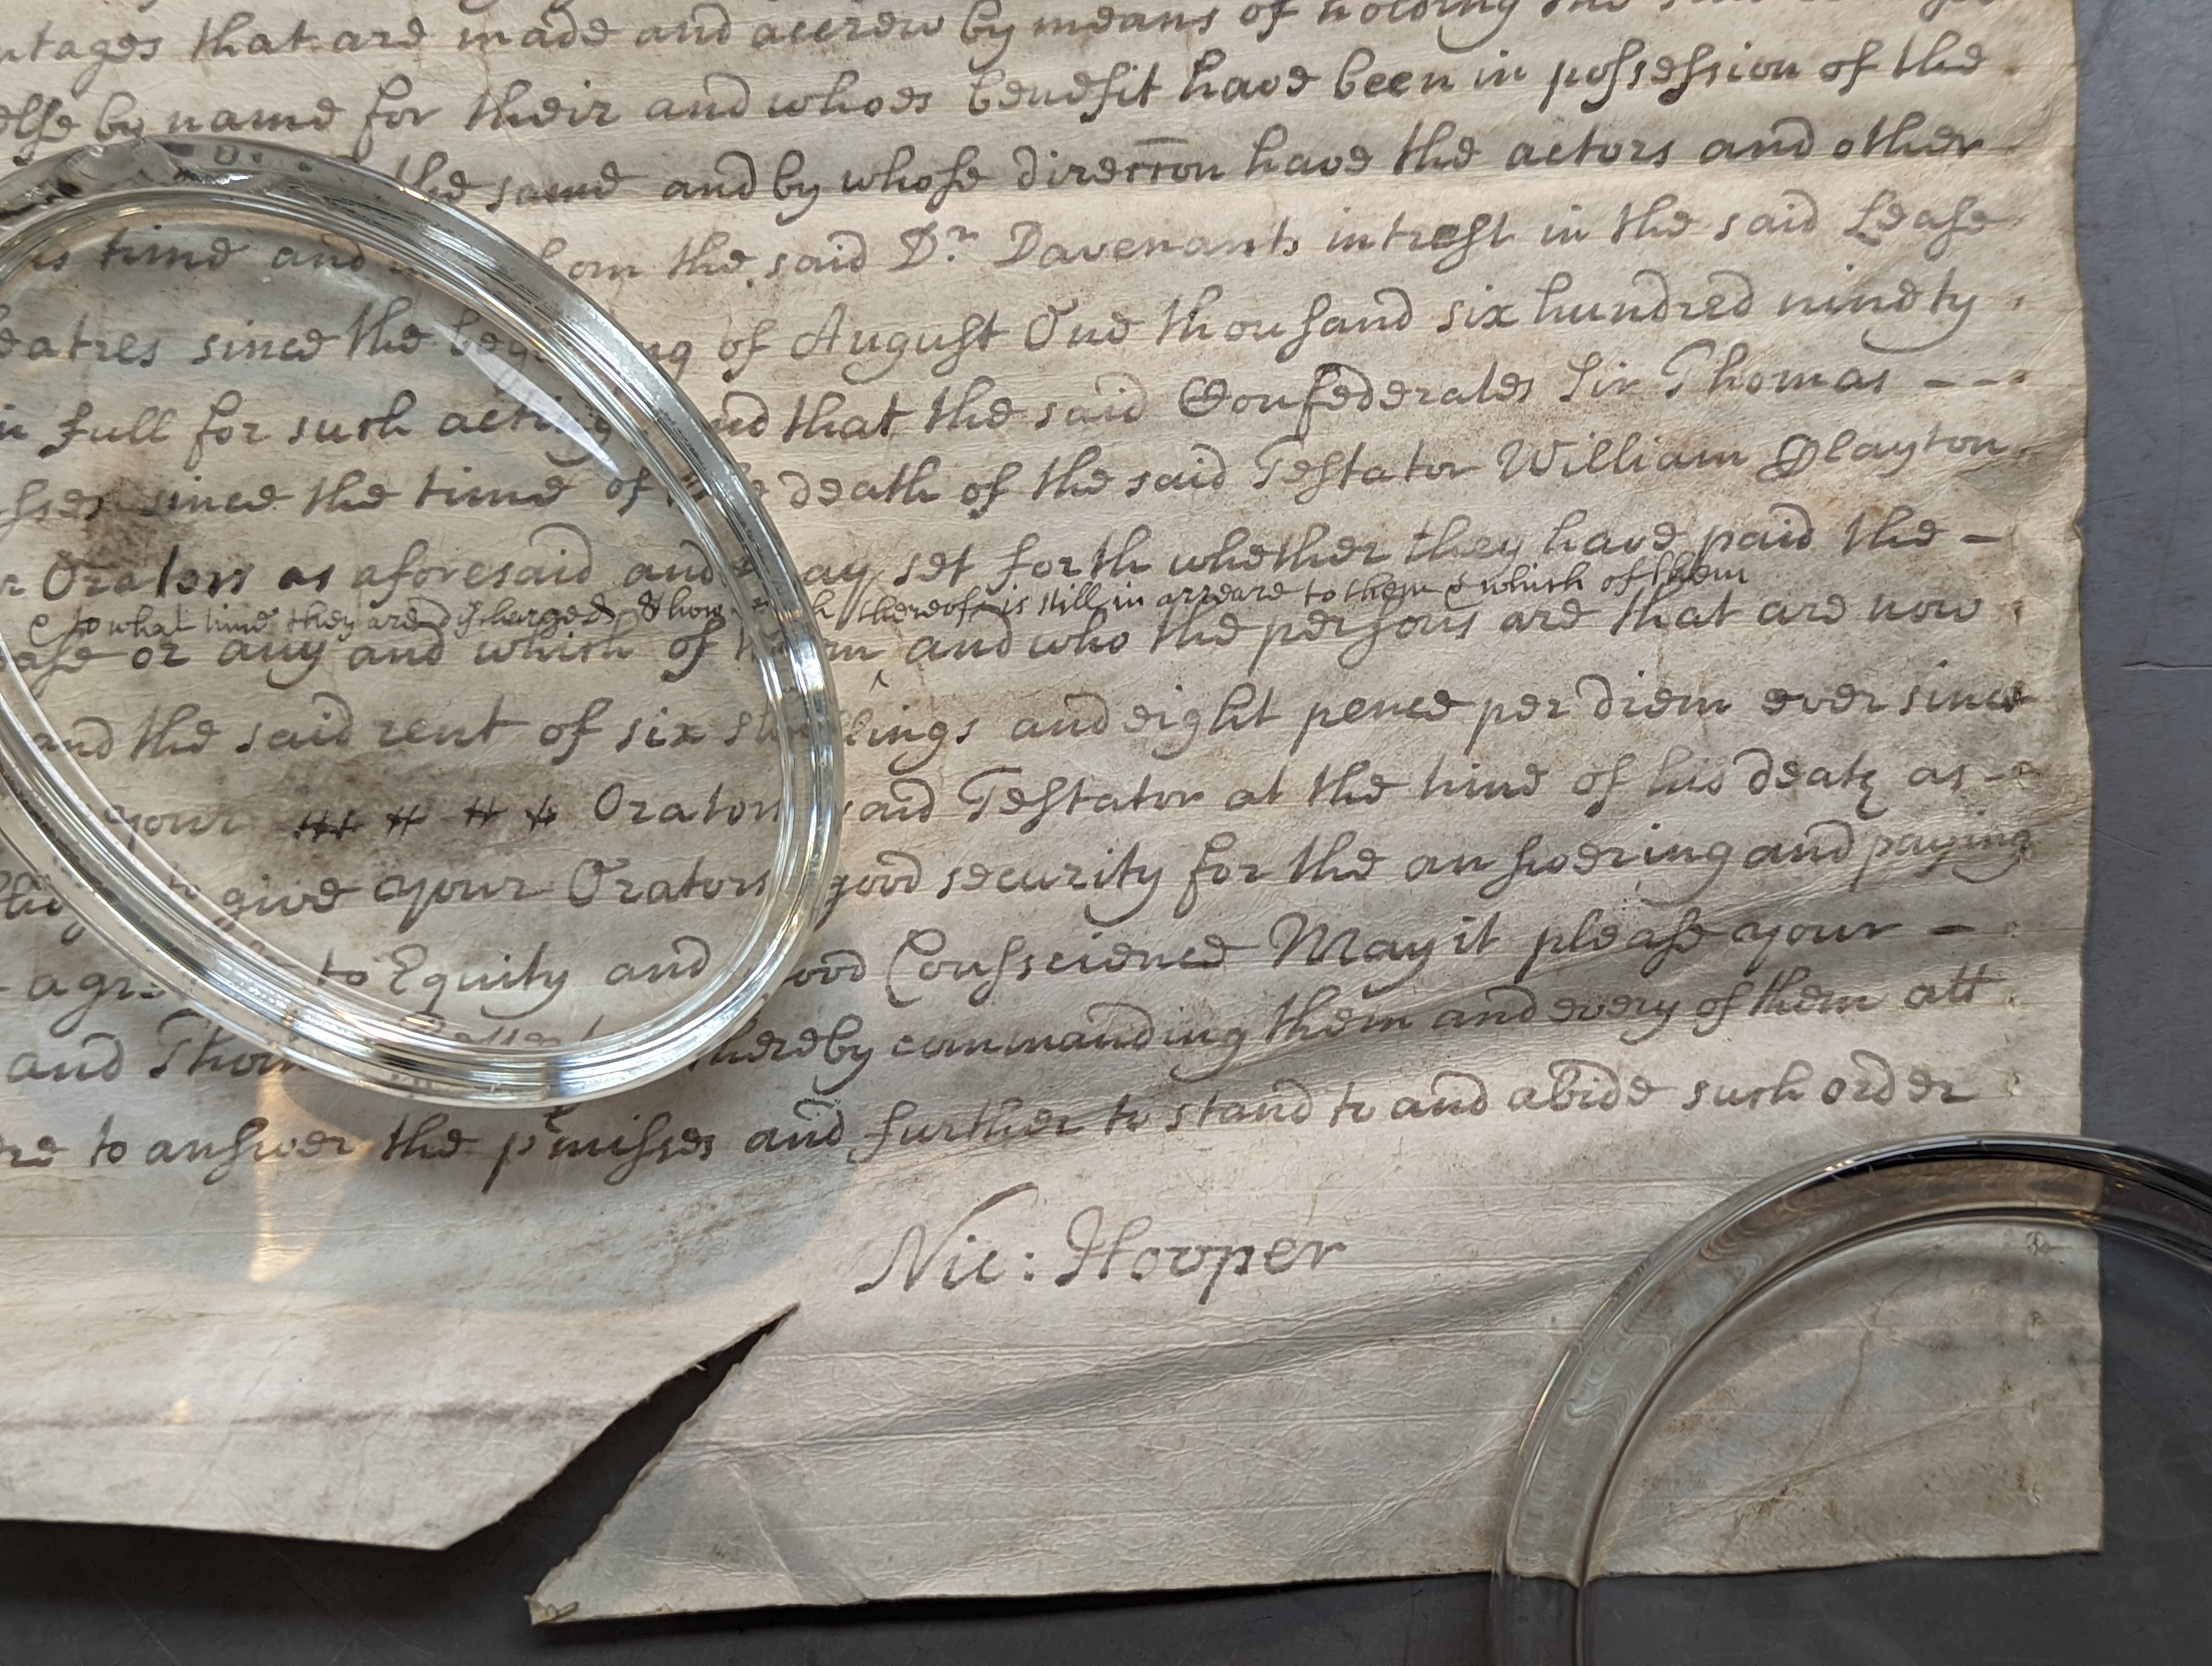 ntages that are made and accrew by means of holding the said
else by name for their and whoes benefit have been in possession of the
the same and by whose direccon have the actors and other
is time and om the said Dr. Davenants intrest in the said Lease
eatres since the beg ng of August One thousand six hundred ninety
in full for such acting nd that the said Confederates Sir Thomas - -
sses since the time of the death of the said Testator William Clayton
r Orators as aforesaid and may set forth whether they have paid the -
& to what time they are discharged & how thereof is still in arreare to them & which of them
ease or any and which of them and who the persons are that are now
and the said rent of six shillings and eight pence per diem ever since
your Orators said Testator at the time of his death as -
to give your Orators good security for the answering and paying
agre to Equity and good Conscience May it please your -
and Thom hereby commanding them and every of them att
re to answer the p^emisses and further to stand to and abide such order
Nic: Hooper